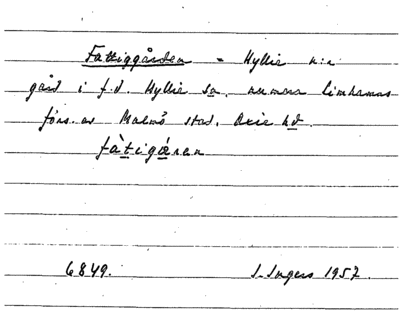 Fattiggården = Hyllie n:r
gård i f.d. Hyllie sn, numera Limhamns
förs. av Malmö stad. Oxie hd.
fàtigǽren
6849. I. Ingers 1957.